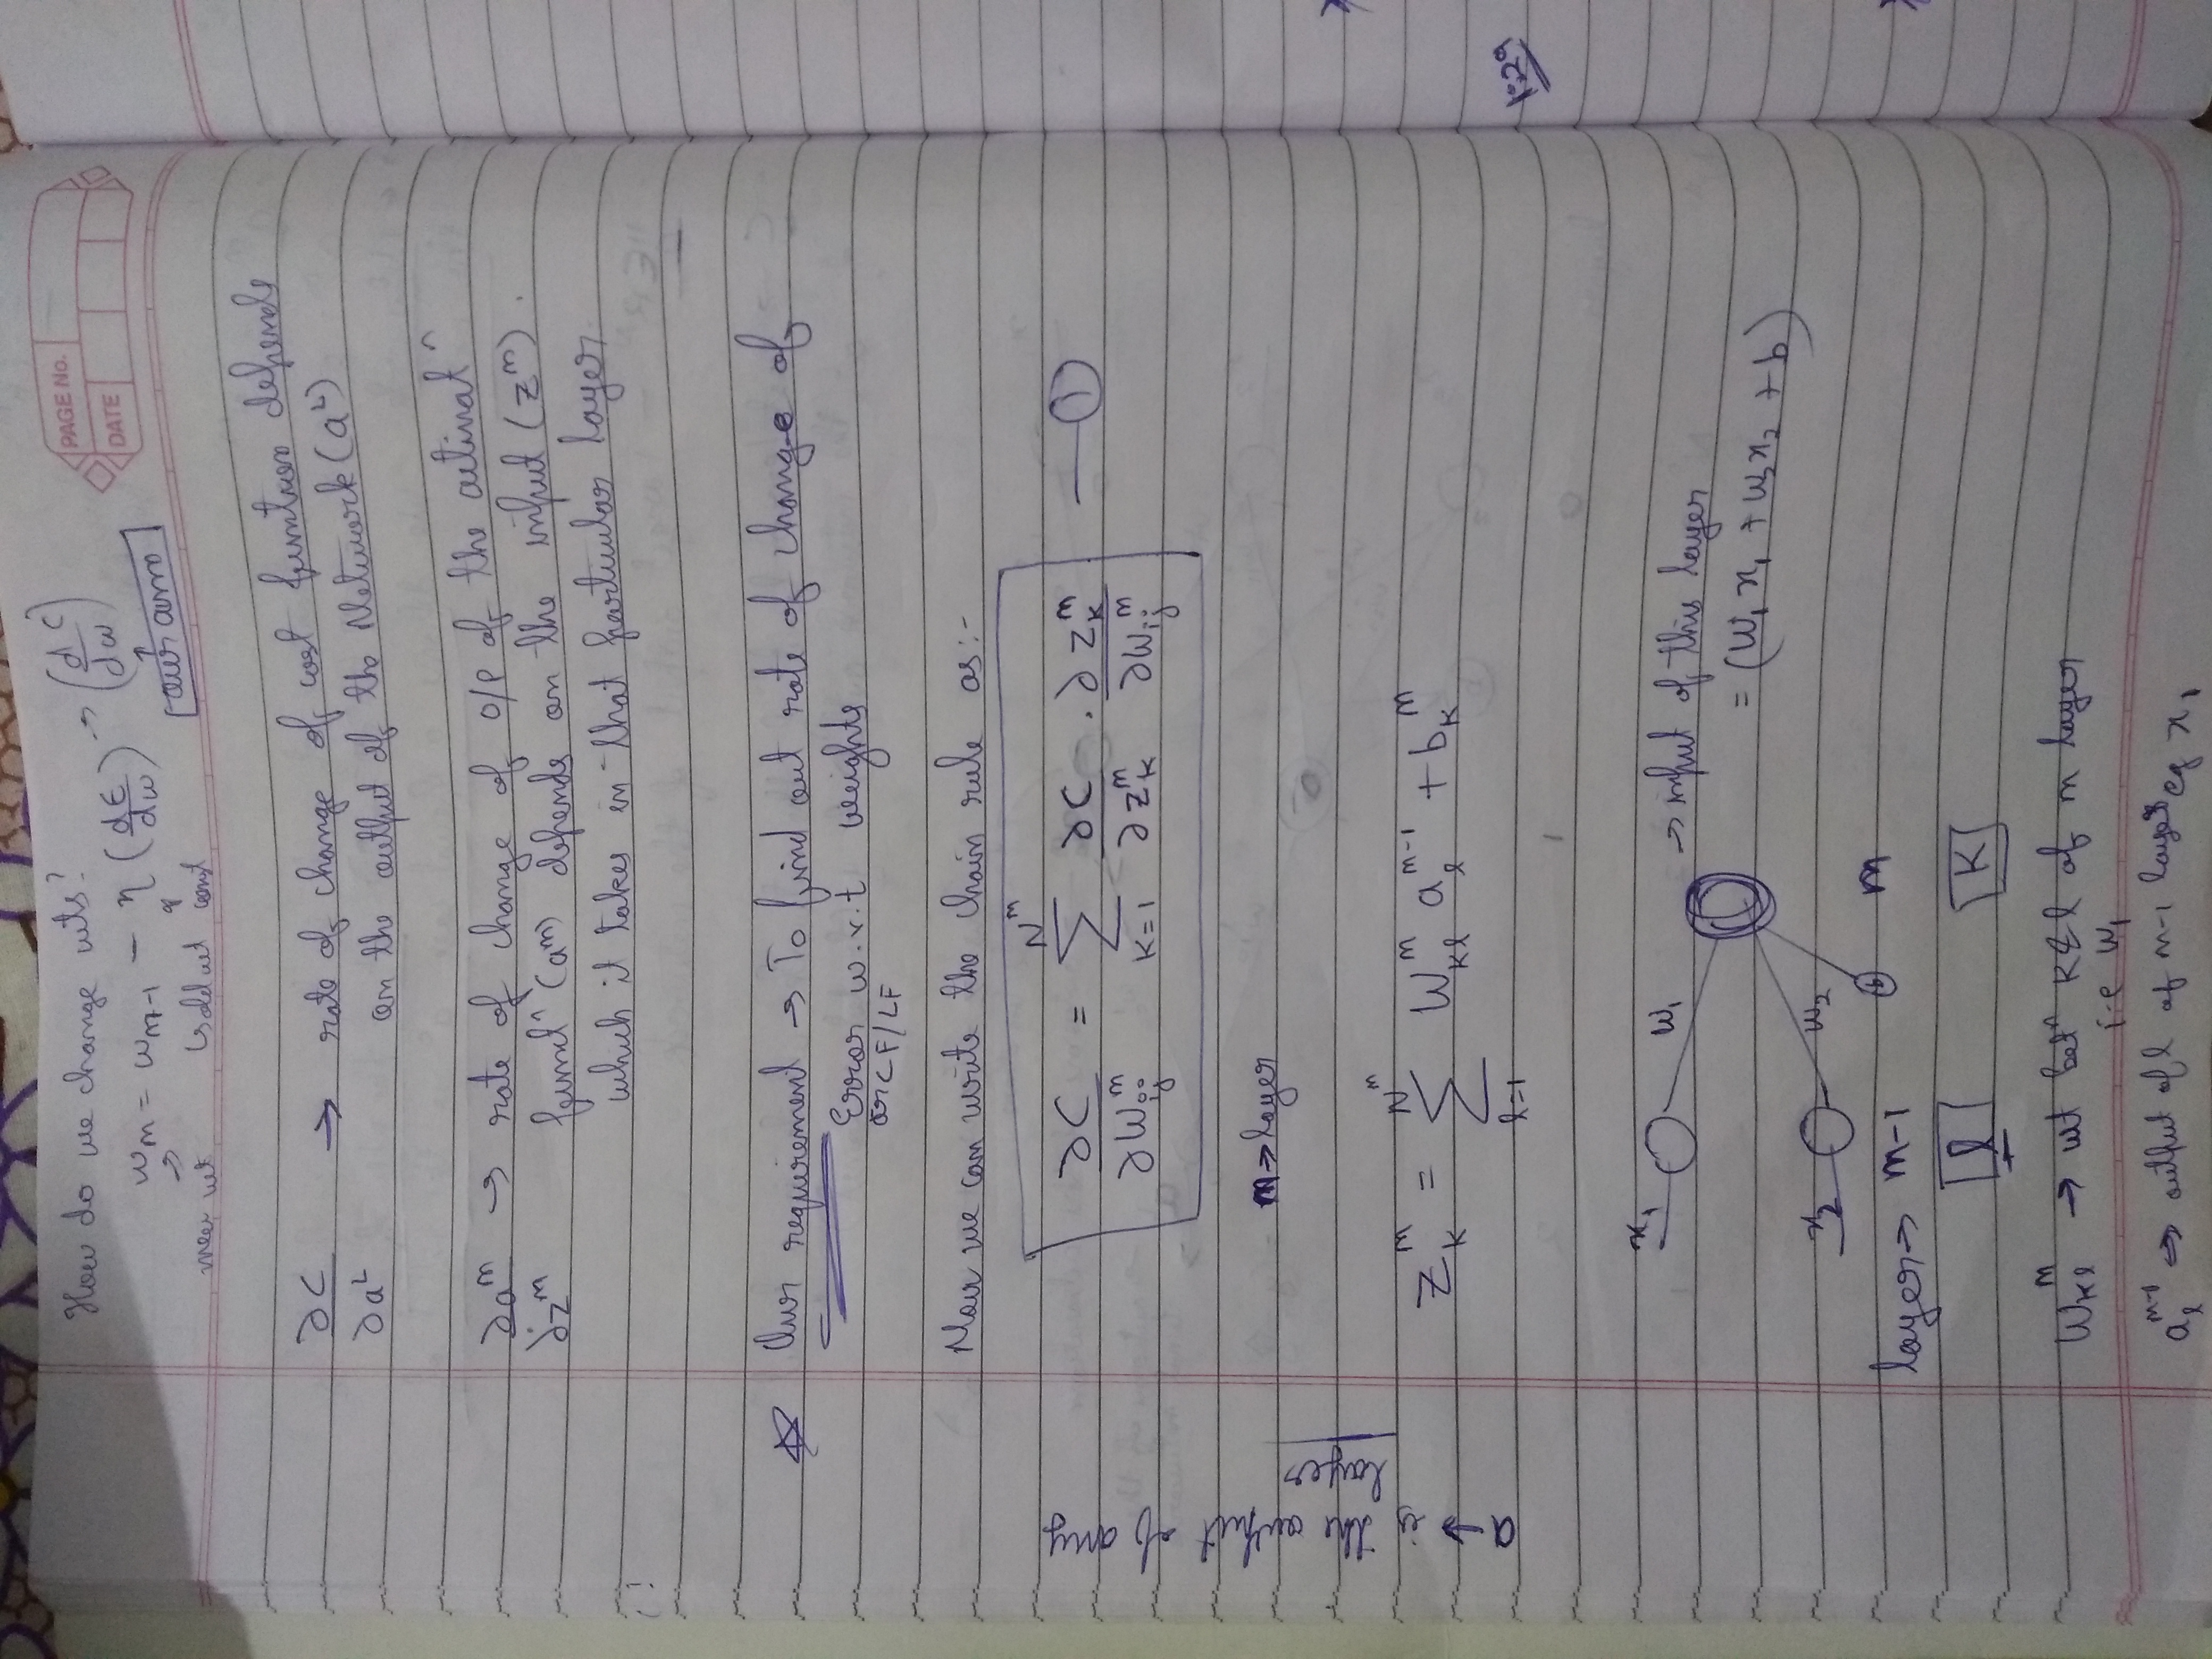 PAGE NO.
DATE
How do we change wts?
w_m = w_{m-1} - η (dE/dw) → (dC/dw)
new wt
old wt
const
our aim
∂C/∂a^L → rate of change of cost function depends
on the output of the Network (a^L)
∂a^m/∂z^m → rate of change of O/P of the activat^n
funct^n (a^m) depends on the input (z^m).
which it takes in that particular layer.
☆ Our requirement → To find out rate of change of
Error w.r.t weights
or CF/LF
Now we can write the chain rule as:-
∂C/∂W_{ij}^m = Σ_{K=1}^{N^m} ∂C/∂z_K^m . ∂z_K^m/∂W_{ij}^m — ①
m → layer
a → is the output of any
layer
Z_K^m = Σ_{l=1}^{N^m} W_{Kl}^m a_l^{m-1} + b_K^m
x_1 W_1 → input of this layer
= (W_1 x_1 + W_2 x_2 + b)
x_2 W_2
b
layer → m-1 m
l K
W_{Kl}^m → wt bet^n K & l of m layer
i.e W_1
a_l^{m-1} → output of l of m-1 layer eg x_1
1:29